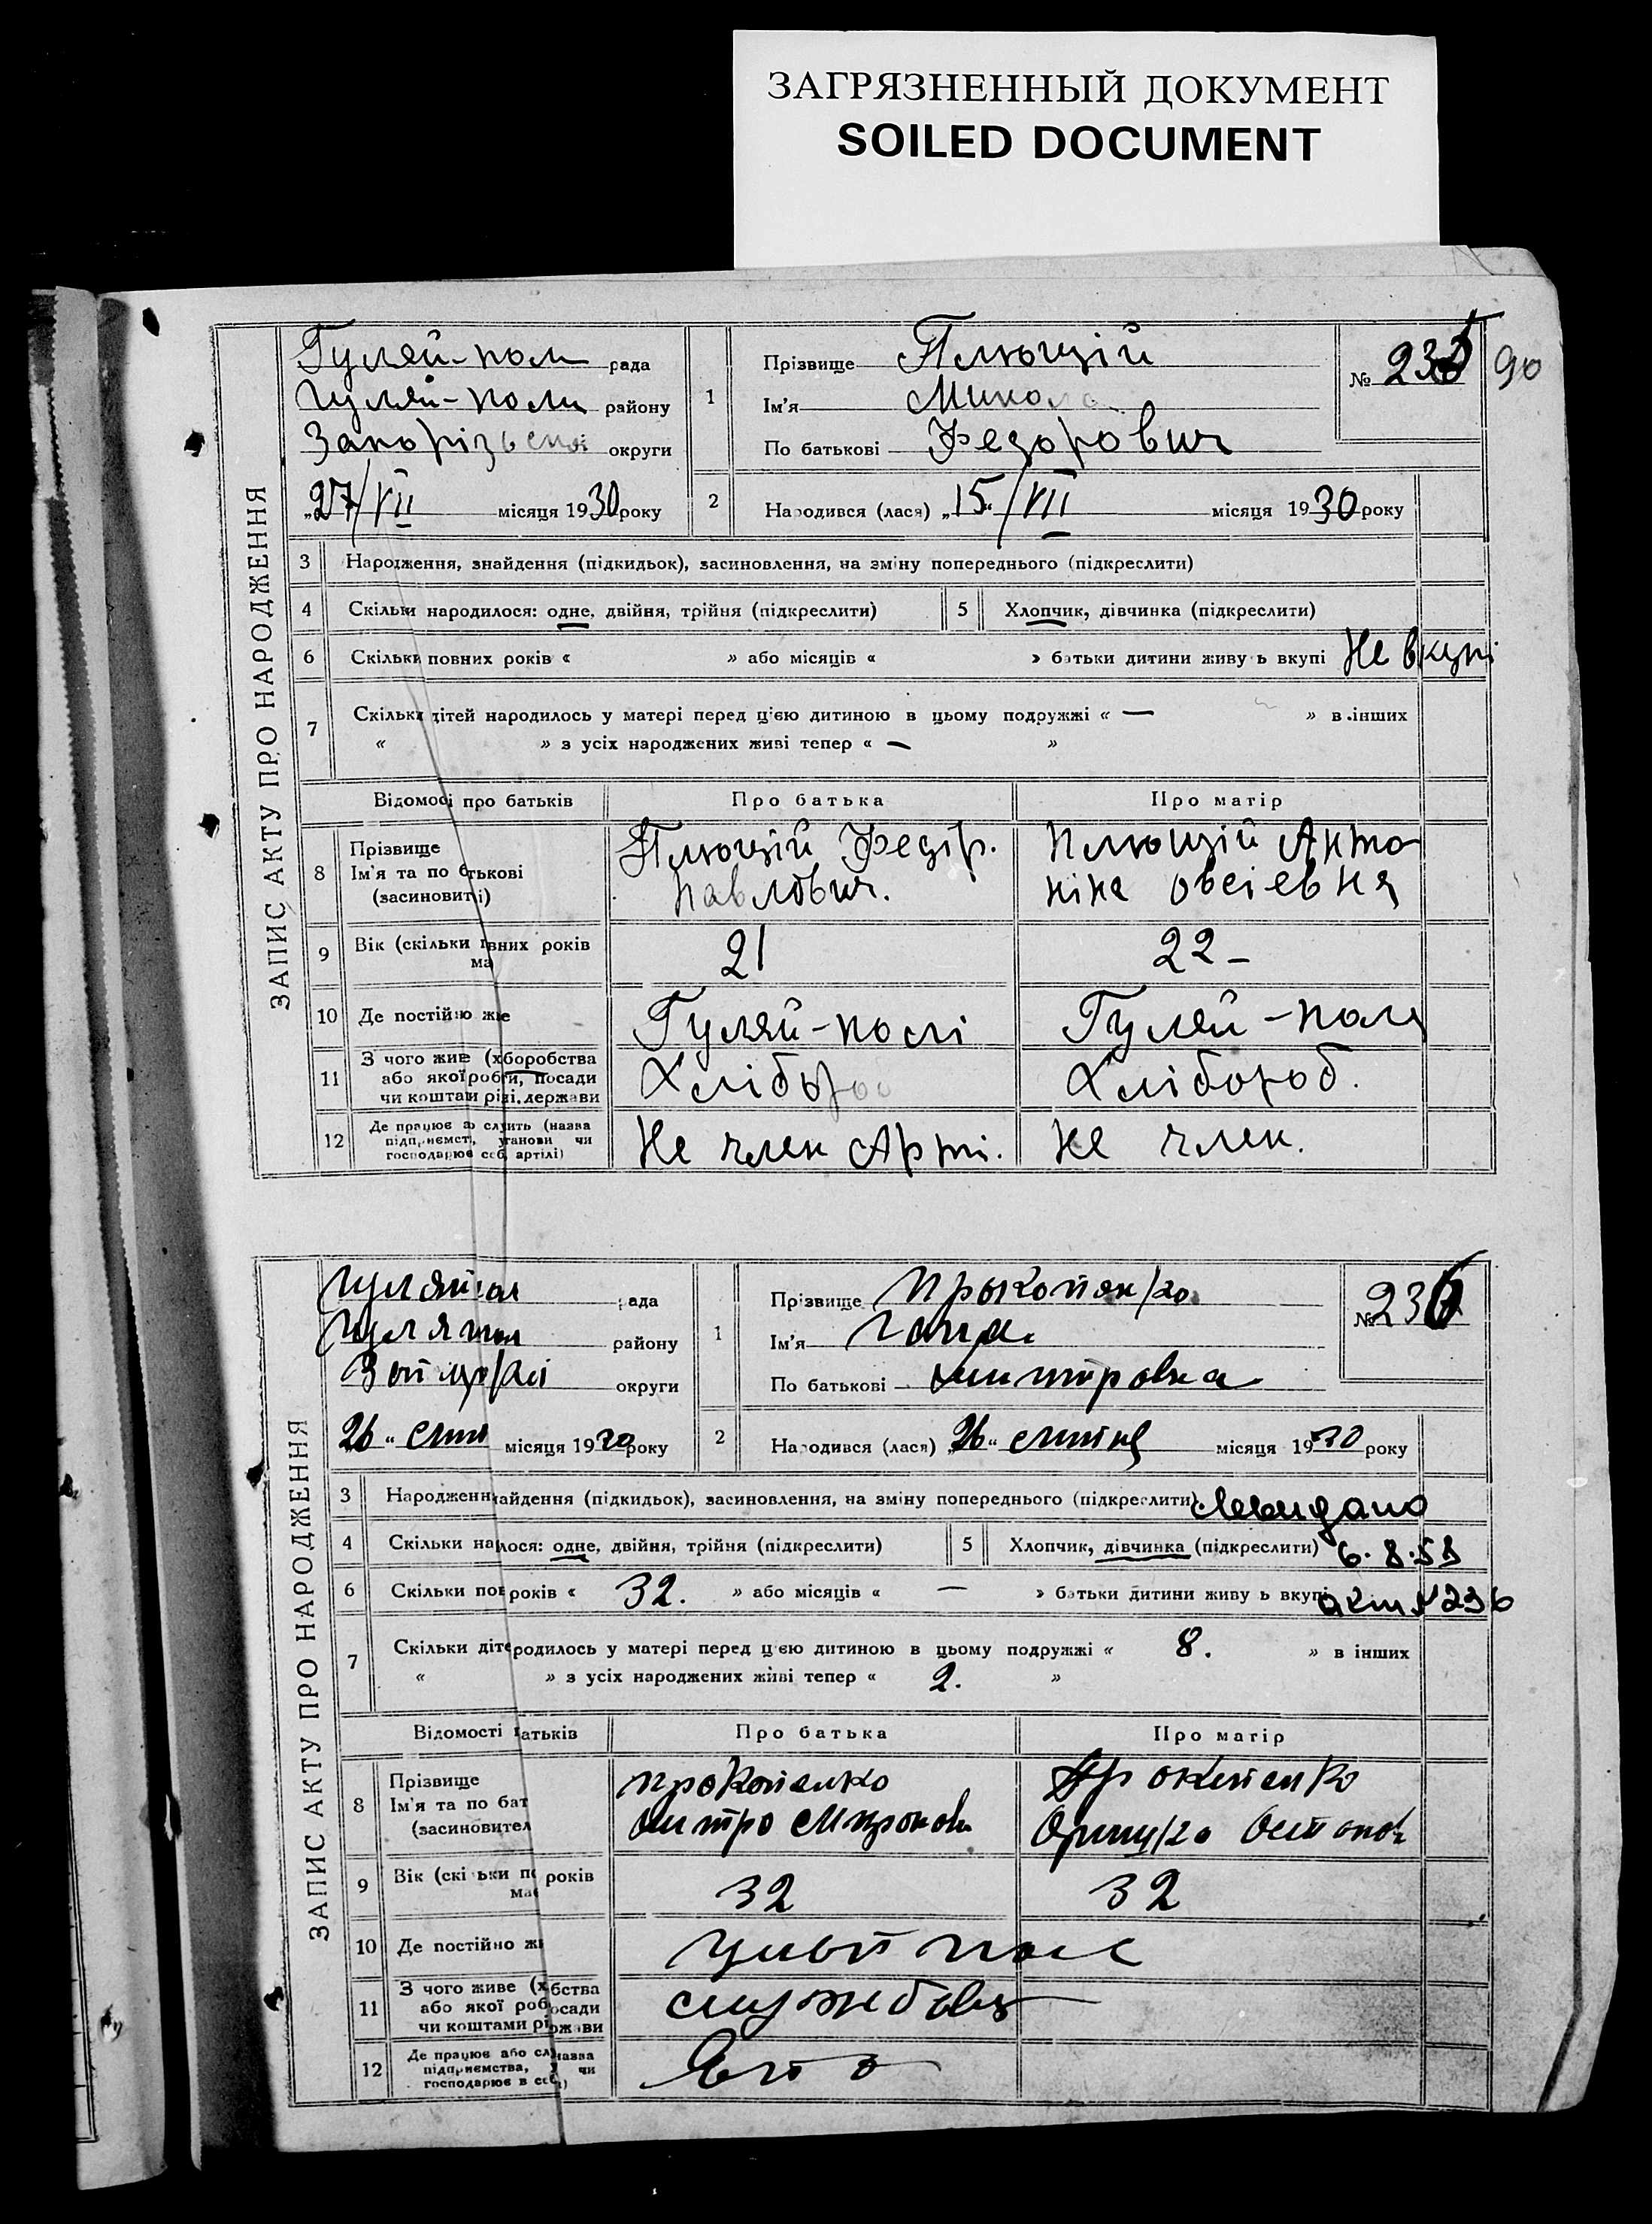 ЗАГРЯЗНЕННЫЙ ДОКУМЕНТ
SOILED DOCUMENT
90
ЗАПИС АКТУ ПРО НАРОДЖЕННЯ
Гуляй-пол рада
Гуляй-поли району
Запорізьської округи
„27/VII місяця 1930 року
1 Прізвище Плющій
Ім'я Микола
По батькові Федорович
№ 235
2 Народився (лася) „15“/VII місяця 1930 року
3 Народження, знайдення (підкидьок), засиновлення, на зміну попереднього (підкреслити)
4 Скільки народилося: одне, двійня, трійня (підкреслити) 5 Хлопчик, дівчинка (підкреслити)
6 Скільки повних років « » або місяців « » батьки дитини живу ь вкупі Не вкупі
7 Скільки дітей народилось у матері перед цією дитиною в цьому подружжі « — » в інших
« » з усіх народжених живі тепер « — »
Відомосі про батьків Про батька Про матір
8 Прізвище Ім'я та по батькові (засновит і)
Плющій Федір. Павлович.
Плющій Анто ніна Овсієвня
9 Вік (скільки вних років ма 21 22 –
10 Де постійно жие Гуляй-полі Гуляй-поля
11 З чого живе (хборобства або якої роби, посади чи коштаи рі.держави Хлібороб Хлібороб.
12 Де працює слуить (назва підприємст, установи чи господарює себ артілі) Не член Арті. Не член.
ЗАПИС АКТУ ПРО НАРОДЖЕННЯ
рада
району
округи
26 “ місяця 1930 року
1 Прізвище
Ім'я
По батькові
№ 236
2 Народився (лася) „26“ липня місяця 1930 року
3 Народженнайдення (підкидьок), засиновлення, на зміну попереднього (підкреслити)
4 Скільки налося: одне, двійня, трійня (підкреслити) 5 Хлопчик, дівчинка (підкреслити) 6.8.53
6 Скільки пов років « 32. » або місяців « — » батьки дитини живу ь вкупі акт № 236
7 Скільки дітеродилось у матері перед цією дитиною в цьому подружжі « 8. » в інших
« » з усіх народжених живі тепер « 2. »
Відомості батьків Про батька Про матір
8 Прізвище Ім'я та по бат (засиновител
Прокопенко
Дмитро Миронов
Прокопенко
Остапов
9 Вік (скі ьки по років має 32 32
10 Де постійно жи
11 З чого живе (хбства або якої робосади чи коштами ржави службовець
12 Де працює або слназва підприємства, у чи господарює в себ)